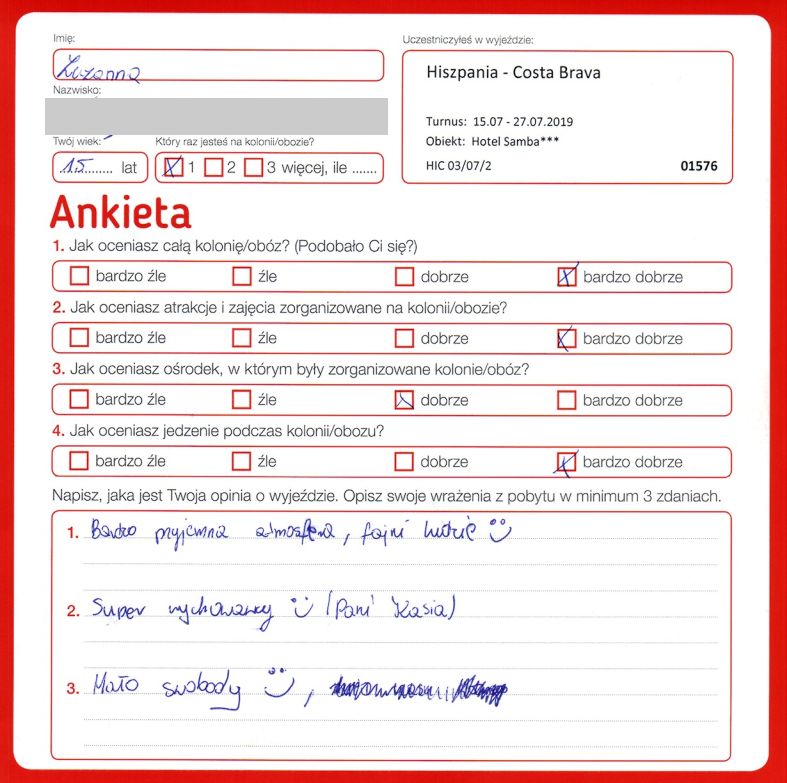 Imię:
Zuzanna
Uczestniczyłeś w wyjeździe:
Nazwisko:
Hiszpania - Costa Brava
Turnus: 15.07 - 27.07.2019
Obiekt: Hotel Samba***
HIC 03/07/2 01576
Twój wiek: Który raz jesteś na kolonii/obozie?
15 lat 1 2 3 więcej, ile .......
Ankieta
1. Jak oceniasz całą kolonię/obóz? (Podobało Ci się?)
bardzo źle źle dobrze bardzo dobrze
2. Jak oceniasz atrakcje i zajęcia zorganizowane na kolonii/obozie?
bardzo źle źle dobrze bardzo dobrze
3. Jak oceniasz ośrodek, w którym były zorganizowane kolonie/obóz?
bardzo źle źle dobrze bardzo dobrze
4. Jak oceniasz jedzenie podczas kolonii/obozu?
bardzo źle źle dobrze bardzo dobrze
Napisz, jaka jest Twoja opinia o wyjeździe. Opisz swoje wrażenia z pobytu w minimum 3 zdaniach.
1. Bardzo przyjemna atmosfera, fajni ludzie
2. Super wychowawcy (Pani Kasia)
3. Mało swobody ,